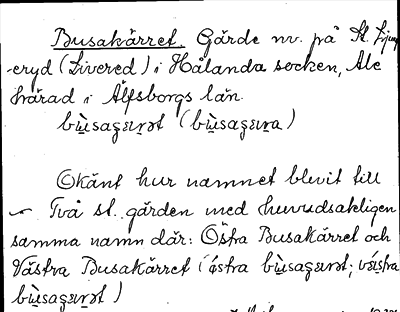 Busakärret. Gärde nv. på St. Ljung
-eryd (Livered) i Hålanda socken, Ale
härad i Älfsborgs län.
bùsagɛrət (bùsagɛra)
Okänt hur namnet blevit till
Två st. gärden med huvudsakligen
samma namn där: Östra Busakärret och
Västra Busakärret (östra bùsagɛrət; västra
bùsagɛrət)